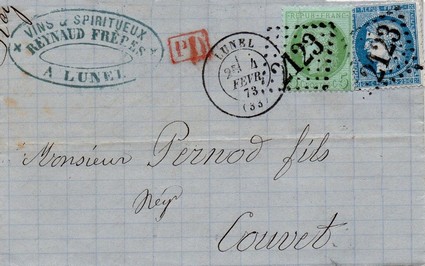 VINS & SPIRITUEUX
REYNAUD FRÈRES
A LUNEL
PD
LUNEL
4
FEVR.
73
(33)
2123
2123
REPUB. FRANC.
Monsieur Pernod fils
Négt
Couvet.